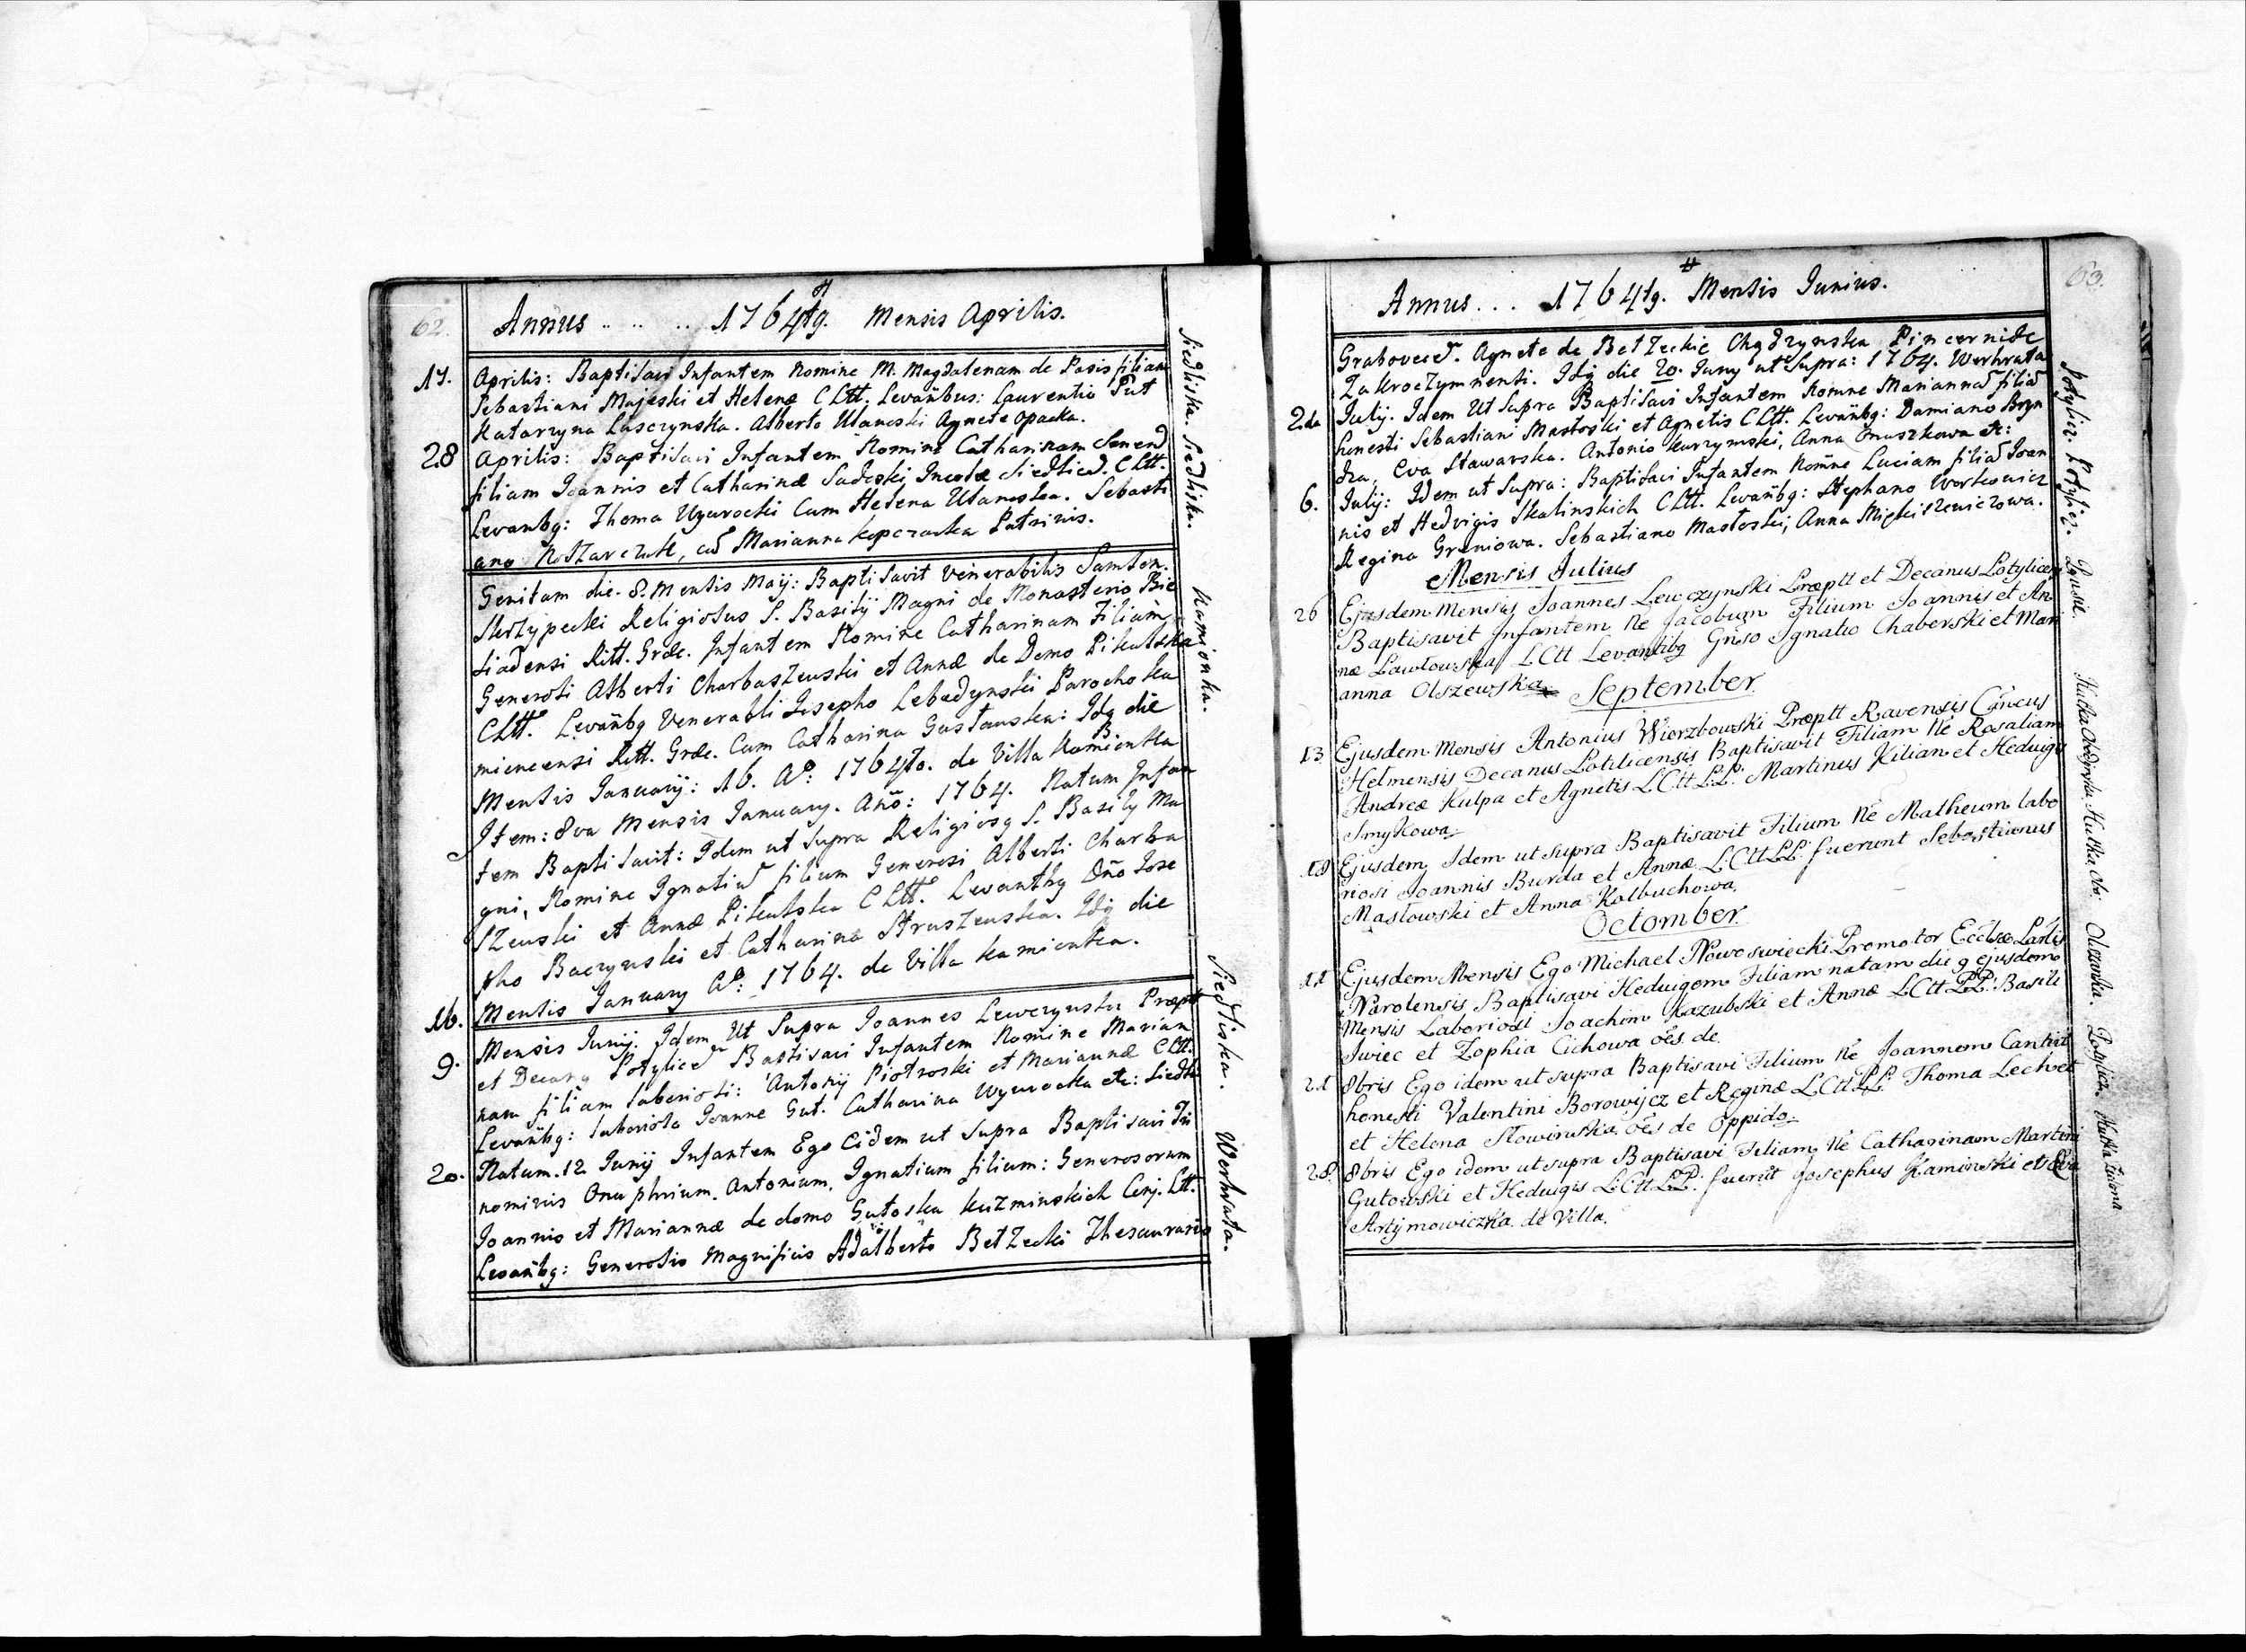 62.
Annus .. .. .. 1764tg. Mensis Aprilis.
17. Aprilis: Baptisavi Infantem Nomine M. Magdalenam de Pasis filiam
Sebastiani Majeski et Helenæ CLtt. Levanbus: Laurentio Put
Katarzyna Lasczynska. Alberto Ulanoski Agnete Opacka.
28 Aprilis: Baptisavi Infantem Nomine Catharinam
filiam Joannis et Catharinæ Sadeski, Incolæ Siedlicen. CLtt.
Levanbg: Thoma Wgwrocki Cum Helena Ulanoska. Sebasti
ano Kotzarczuk, cum Marianna Kopczacka Patrinis.
Genitam die. 8. Mensis Maij: Baptisavit Venerabilis Samson.
Skrzypecki Religiosus S. Basilij Magni de Monasterio Bie
siadensi Ritt. Græc. Infantem Nomine Catharinam Filiam
Generosi Alberti Charbaszewski et Annæ de Domo Pikulska
CLtt. Levanbg Venerabli Josepho Lebedynski Parocho Ka
mieneensi Ritt. Græc. Cum Catharina Gustauska: Idg die
Mensis Januarij: 16. Aº: 1764to. de Villa Kamionka
Item: 8va Mensis January. Año: 1764. Natum Infan
tem Baptisavit: Idem ut supra Religiosg S. Basily Ma
gni, Nomine Ignatiu filium Generosi Alberti Charba
szewski et Annæ Pikulska CLtt. Levantbg Dño Jose
pho Baczynski et Catharina Straszewska. Idg die
16. Mensis January Aº: 1764. de Villa Kamionka.
9. Mensis Junij. Idem Ut Supra Joannes Lewczynski Præptt
et Decang Potylicen Baptisavi Infantem Nomine Marian
nam filiam laboriosi: Antonij Piotroski et Mariannæ CLtt.
Levanbg: laborioso Joanne Gut. Catharina Wgwrocka etc: Siedli
20. Natum. 12 Junij Infantem Ego Eidem ut Supra Baptisavi Tri
nominis Onuphrium. Antonium. Ignatium filium: Generosorum
Joannis et Mariannæ de domo Gutoska Kuzminskich Conj. Ltt.
Levanbg: Generosis Magnificis Adalberto Betzecki Thesaurario
Siedliska. Sedliska. Kamionka. Siedliska. Werhrata.
63.
Annus . . . 1764tg. Mensis Junius.
Graboviecen. Agnete de Betzeckie Chądzynska Pincernide
Zakroczymnensi. Idg die 20. Juny ut Supra: 1764. Werhrata
2.da Julij. Idem Ut Supra Baptisavi Infantem Nomine Mariannam filiam
honesti Sebastiani Mastoski et Agnetis CLtt. Levanbg: Damiano Bryn
dza, Eva Stawarska. Antonio Kurzymski, Anna Onuszkowa etc:
6. Julij: Idem ut Supra: Baptisavi Infantem Nomine Luciam filiam Joan
nis et Hedvigis Skalinskich CLtt. Levanbg: Stephano Workowicz
Regina Greniowa. Sebastiano Mastoski, Anna Miękiszewiczowa.
Mensis Julius
26 Ejusdem Mensis Joannes Lewczynski Præptt et Decanus Potylicen
Baptisavit Infantem Ne Jacobum Filium Joannis et An
næ Lawlowska LCtt Levantibg Gñso Ignatio Chaberski et Mari
anna Olszewska
September
13 Ejusdem Mensis Antonius Wierzbowski Præptt Ravensis Cancus
Helmensis Decanus Potilicensis Baptisavit Filiam Ne Rosaliam
Andreæ Kulpa et Agnetis L.Ctt L.P. Martinus Kilian et Heduigis
Smykowa
18 Ejusdem Idem ut supra Baptisavit Filium Ne Matheum labo
riosi Joannis Burda et Annæ L.Ctt L.P. fuerunt Sebastianus
Maslowski et Anna Kolbuchowa.
Octomber
11 Ejusdem Mensis Ego Michael Nowoswiecki Promotor Ecclsæ Parlis
Narolensis Baptisavi Heduigem Filiam natam die 9 ejusdem
Mensis Laboriosi Joachim Kazubski et Annæ L.Ctt P.P. Basili
Swiec et Zophia Cichowa oẽs de
21 8bris Ego idem ut supra Baptisavi Filium Ne Joannem Cantist
honesti Valentini Borowijcz et Reginæ L.Ctt L.P. Thoma Lech et
et Helena Slowinska oẽs de Oppido.
28. 8bris Ego idem ut supra Baptisavi Filiam Ne Catharinam Martini
Gutowski et Heduigis L.Ctt L.P. fuerut Josephus Kaminski et Eva
Artijmowiczka de Villa.
Potylicz. Potylicz. Hutka Obedynska. Hutka Ob: Potylicz. Hutka Zielona